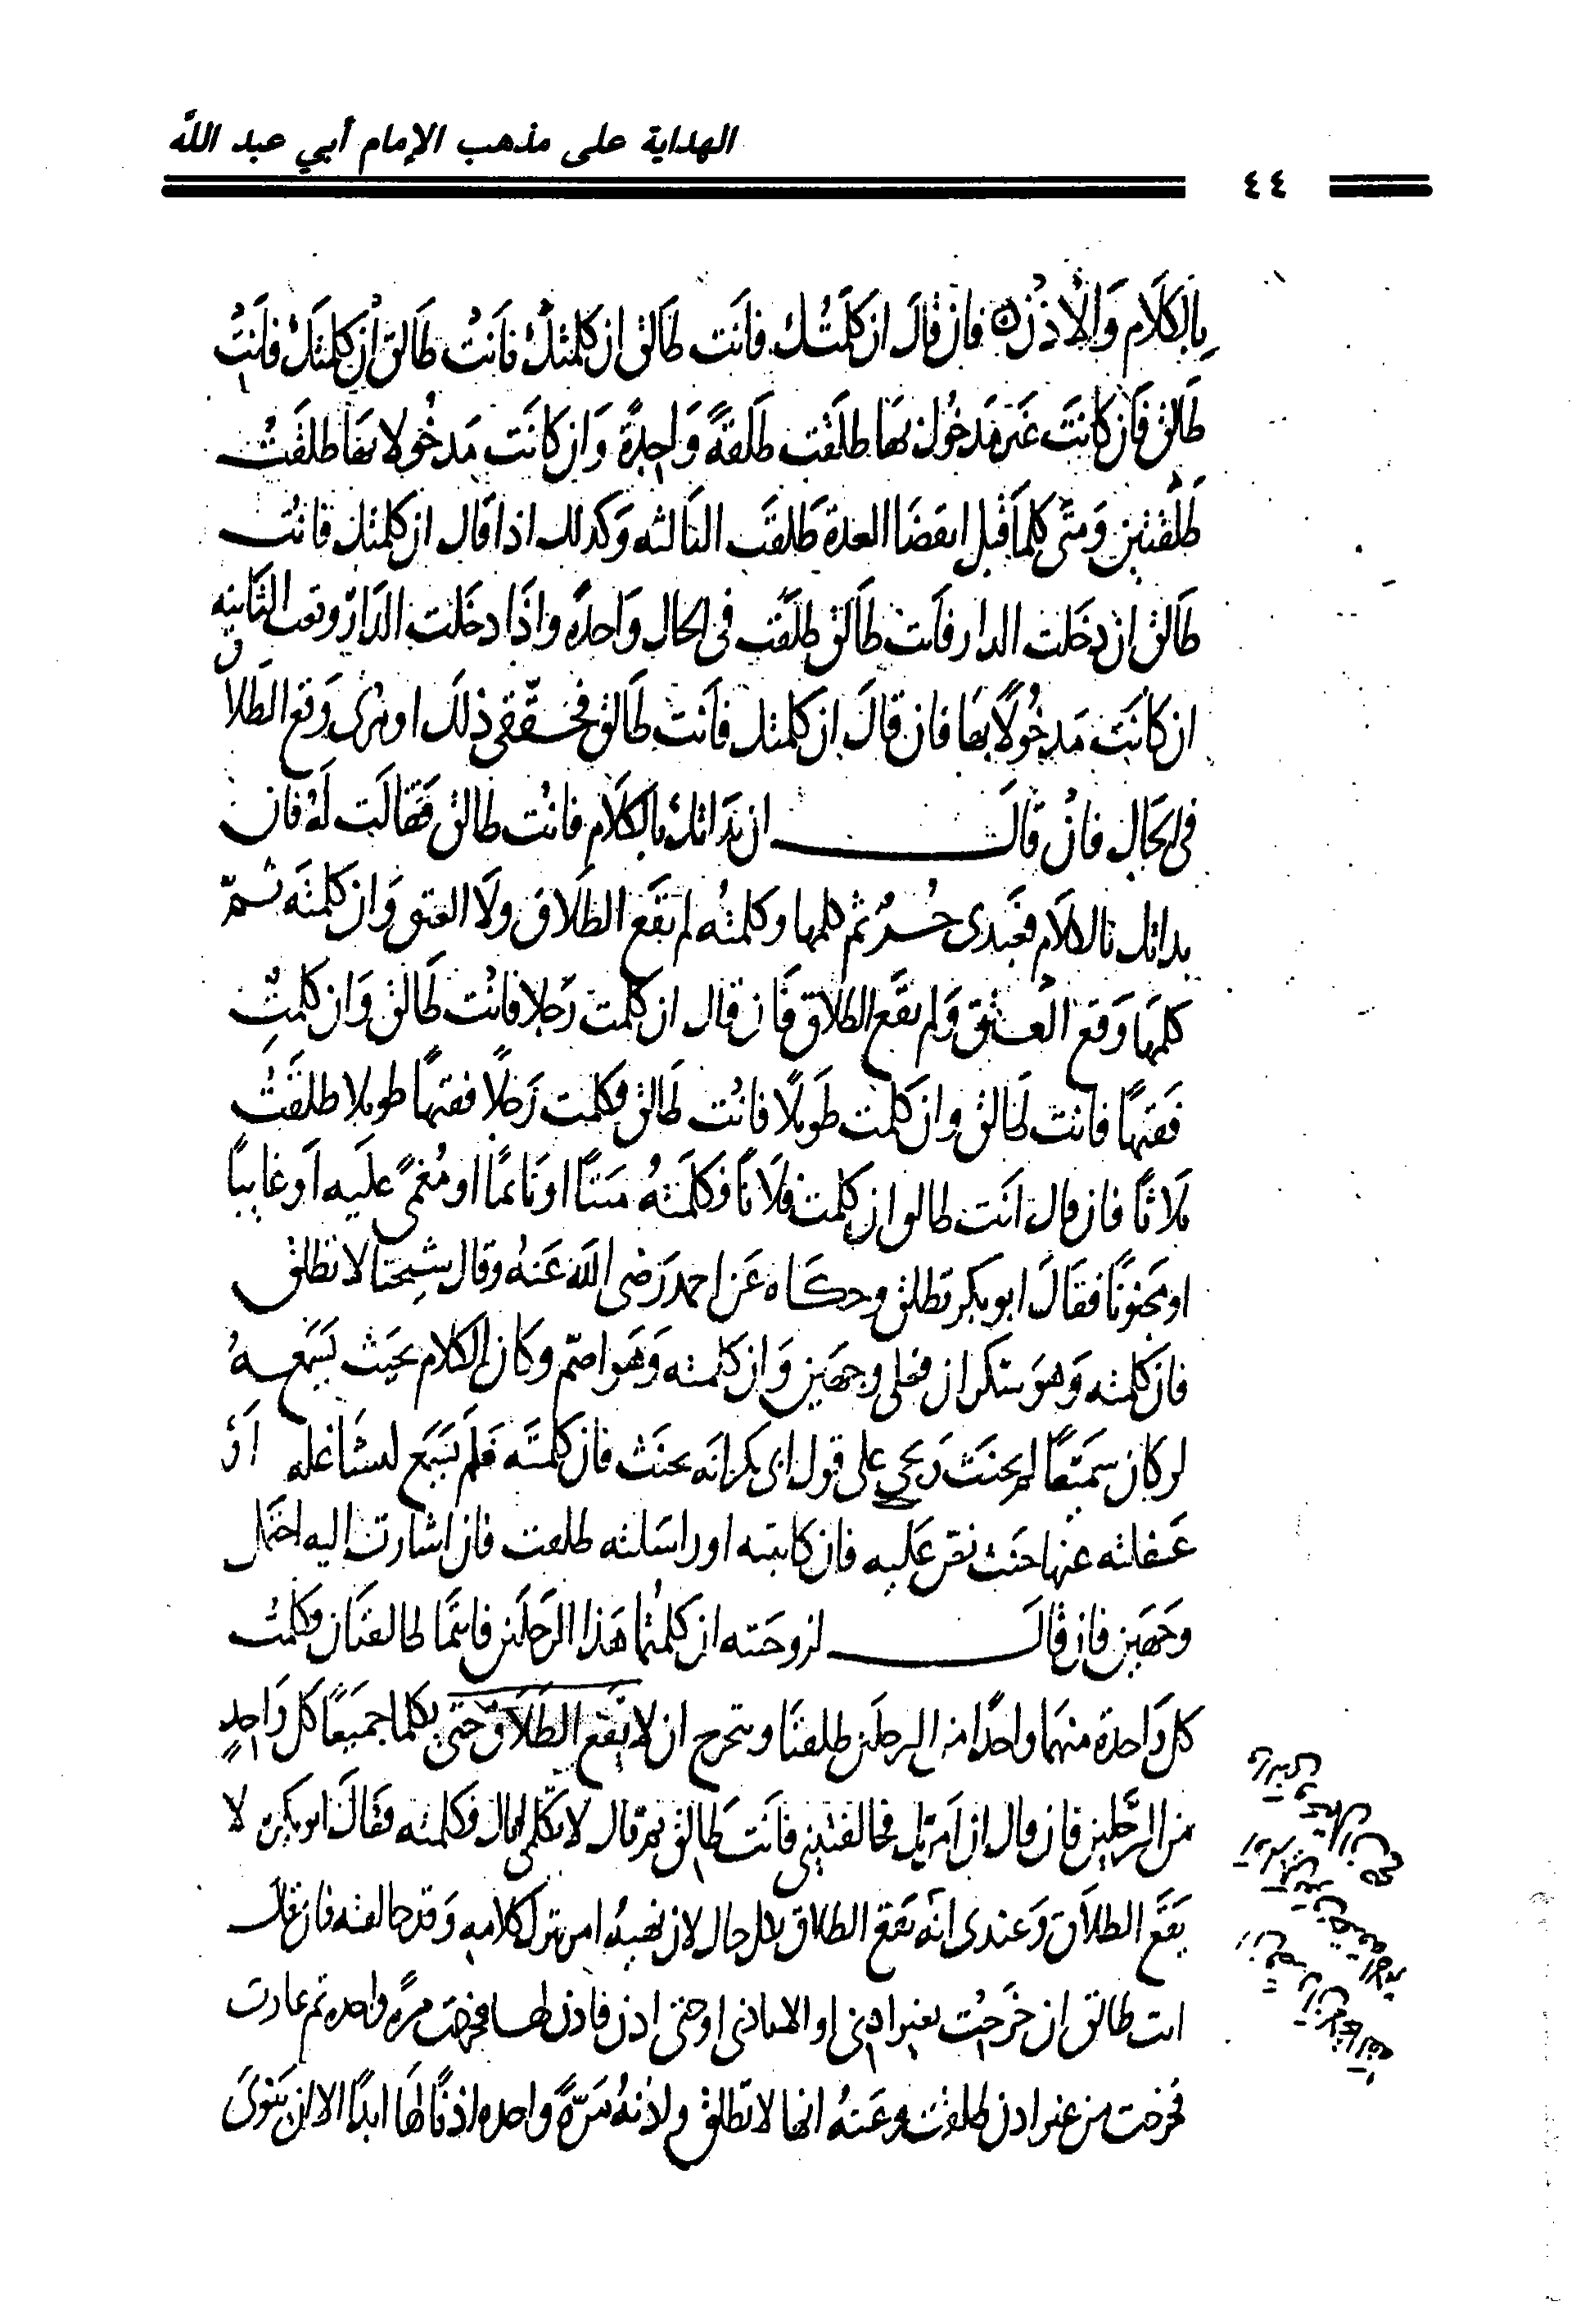 الهداية على مذهب الإمام أبي عبد الله
٤٤
بِالكَلَام وَالْاذْنِ فان قالَ ان كَلَّمتُك فانَت طالق ان كلمتكْ فانَتْ طَالق ان كلمتكْ فَانَتْ
طَالق فَان كانتَ غَير مَدخُول بهَا طلقت طَلقةً وَاحِدةً وَان كانَت مَدخُولا بهَا طلقَتْ
طلقتين وَمتى كلمهَا قبل انقضَا العدة طَلقَت الثالثه وَكذلك اذا قال ان كلمتك فانت
طَالق ان دخَلت الدار فانت طَالق طلقَت فى الحال وَاحدةً واذَا دخَلت الدَار وقعت الثَانيه
ان كانَت مَدخُولًا بهَا فان قالَ ان كلمتك فأنت طَالق فتحققى ذلَك او مرى وَقع الطلاق
فى الحَال فانْ قالَ ان بَدَاتك بالكَلَام فانت طالق فقَالَت لَهُ فان
بداتك بالكلَام فعَبدى حُرٌ ثم كلمها وكلمتُه لم يقَع الطَلاق ولَا العتق وَان كلمتَه ثمّ
كلمَها وَقع العتق وَلم يقَع الطلاق فَان قال ان كلمت رَجلا فانت طَالق وَان كلمتِ
فَقيهًا فانت طالق وان كلمت طَويلًا فانت طَالق فكلمت رَجلًا فقيهًا طويلا طلقَتْ
ثلاثًا فان قال انَت طالق ان كلمت فلَانًا فكَلمَتهُ ميتًا او نَائمًا او مُغمًى علَيه اَو غايبًا
او مجنونًا فقَالَ ابو بكر تطلق وحكَاه عَن احمد رَضى اللَه عَنهُ وقال شيخنَا لا تطلق
فان كلمته وَهوَ سَكران فعلى وجهَين وَان كلمته وَهوَ اصّم وكان الكلام بحَيث يَسَمعهُ
لو كان سَميعًا لم يحنَث وَيجى على قول ابى بكر انَه يحنَث فان كلمتَه فلَم يسَمَع لتشَاغله اَوْ
غفلته عنها حنث نصّ عَليه فان كاتبته او راسَلته طلقت فان اشارت اليه احتمل
وَجهَين فان قالَ لزوجَته ان كلمتُما هَذا الرَجلَين فانتمَا طالقتَان فكلمتْ
كل وَاحدة منهمَا واحدًا من الرجلَين طلقتَا ويتخرج ان لا يَقَع الطلَاق حتى يكلما جَميعًا كل وَاحدٍ
من الرَّجلين فان قال ان امَرتك فخالفتينى فانَت طَالق ثم قال لا تكلمى فكلمته فقَالَ ابو بكر لا
يقَع الطلَاق وَعندى انَه يَقع الطلاق بكل حال لان نَهيهُ امر بترك كلامه وَقد خالفته فان قالَ
انت طالق ان خرَجت بغير اذنى او الا باذنى او حتى اذن فاذن لها فخرجَت مرةً واحده ثم عادت
فخرجت من غير اذن طلقت وعَنهُ انها لا تطلق واذنهُ مَرةً واحده اذنًا لهَا ابدًا الا ان يَنوىَ